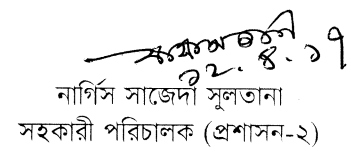 ১২.৪.১৭
নার্গিস সাজেদা সুলতানা
সহকারী পরিচালক (প্রশাসন-২)